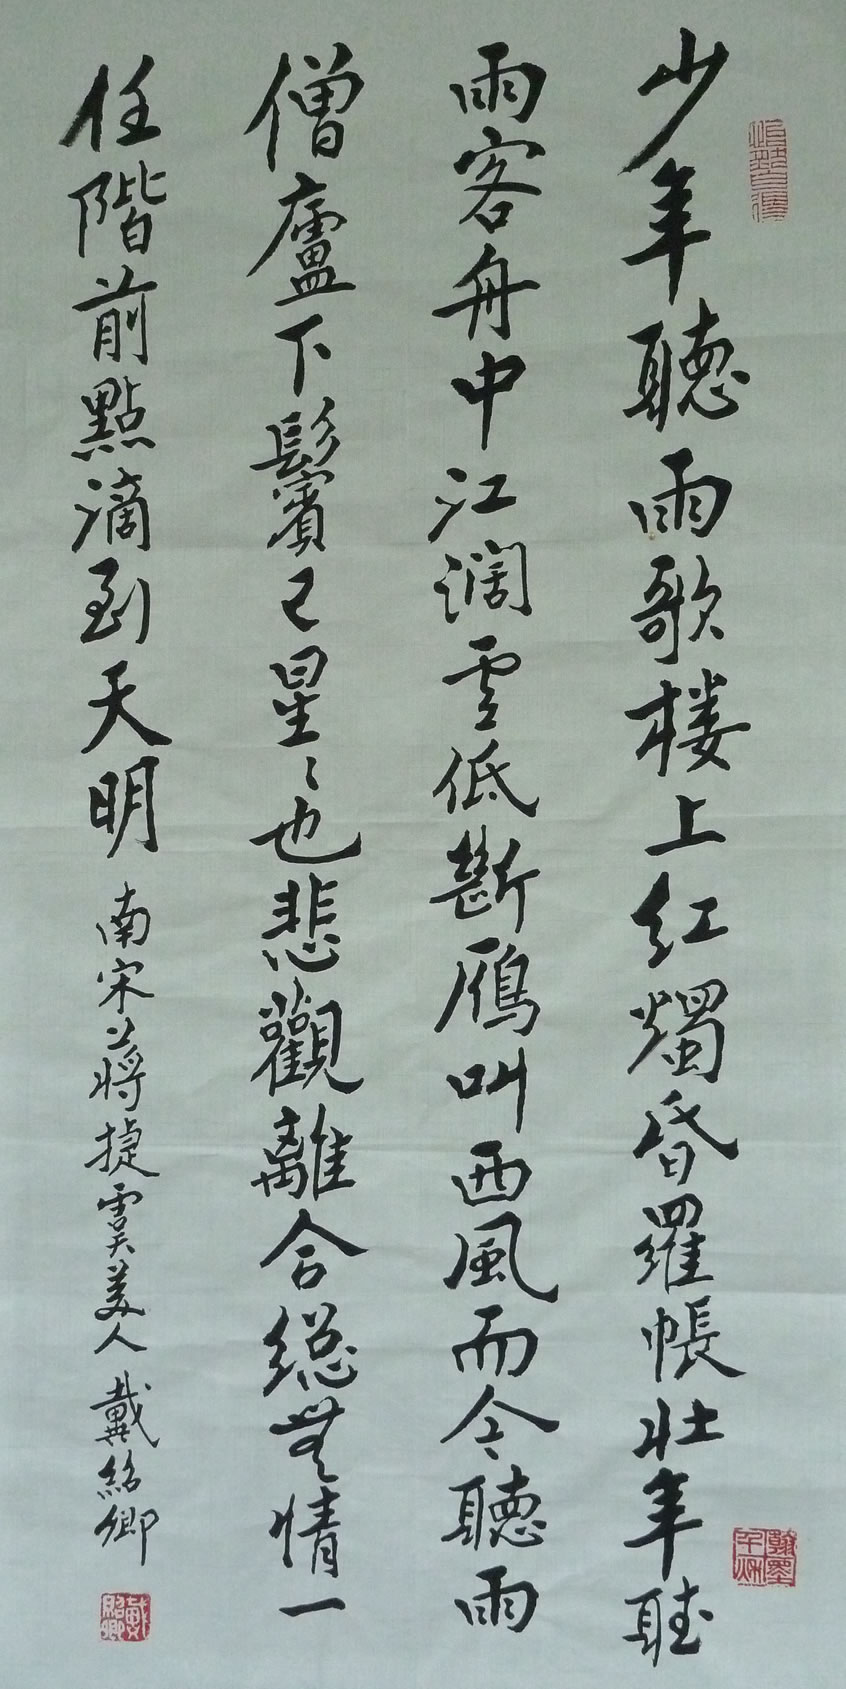 少年聽雨歌楼上红燭昏羅帳壮年聴
雨客舟中江阔雲低斷雁叫西風而今聽雨
僧廬下鬢已星〻也悲觀離合總無情一
任階前點滴到天明
南宋蔣捷虞美人 戴紹卿
戴紹卿
翰墨